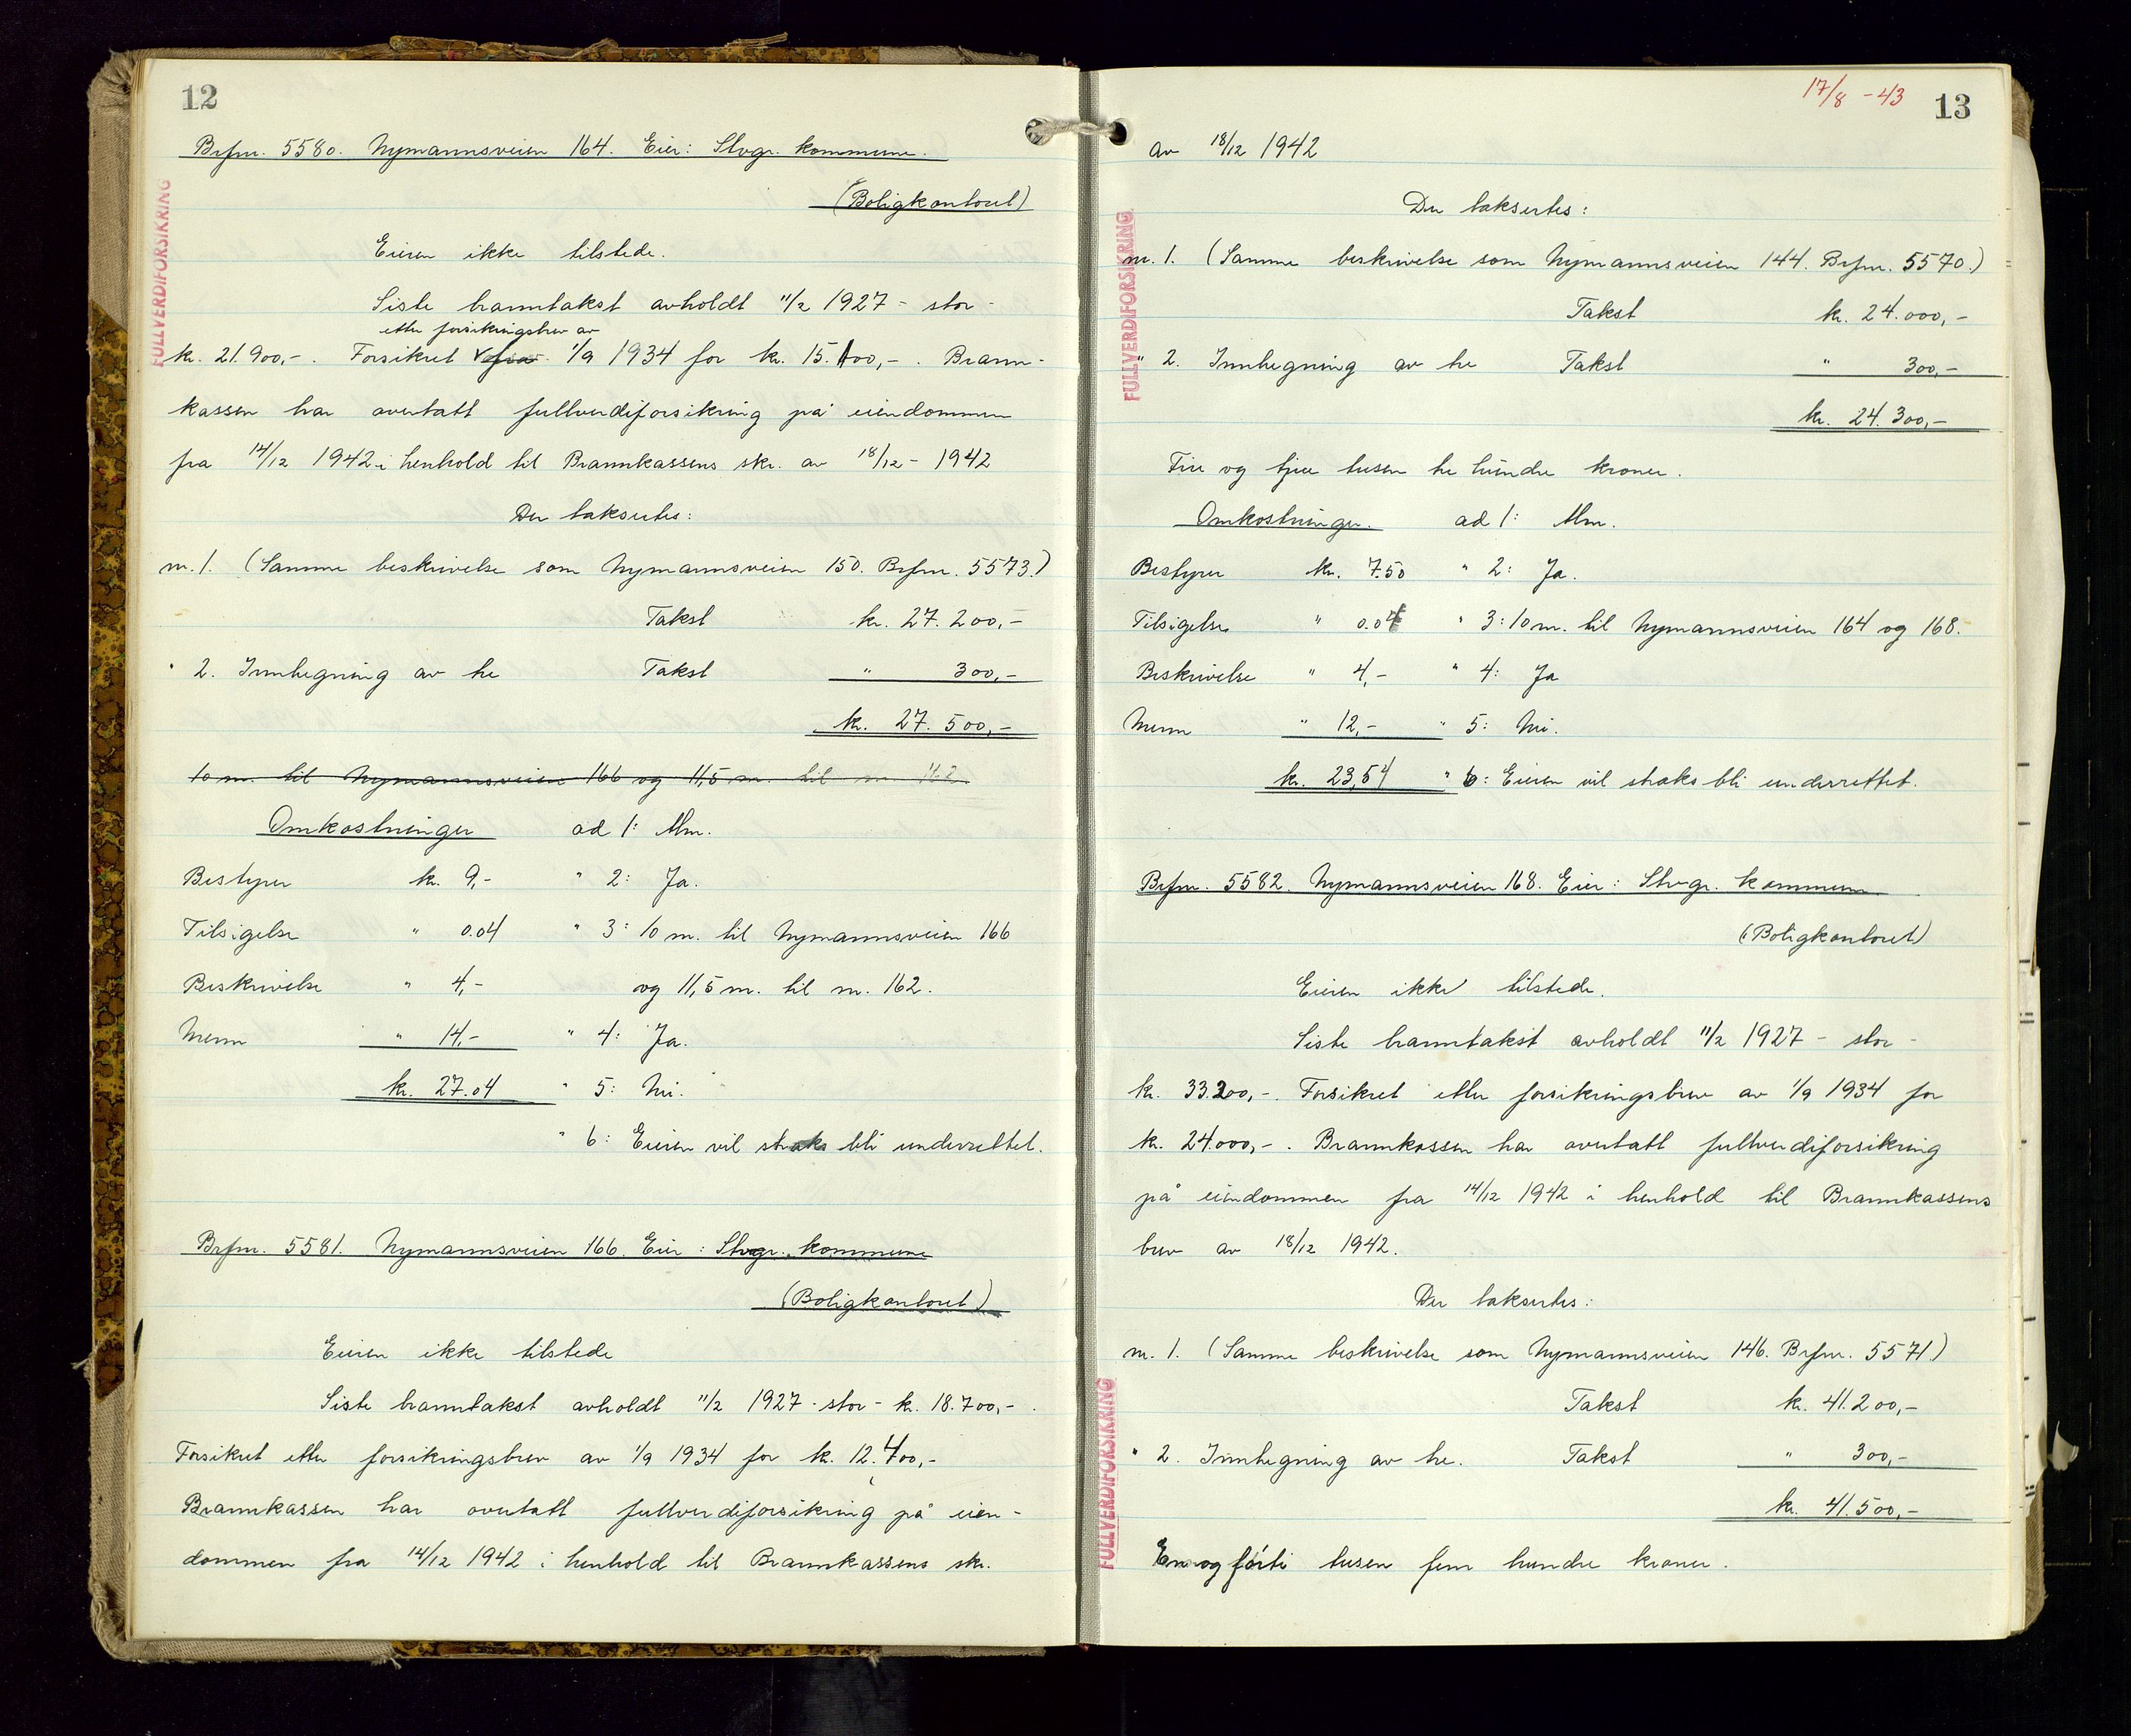 12
Brfnr. 5580. Nymannsveien 164. Eier: Stvgr. kommune.
(Boligkontoret)
FULLVERDIFORSIKRING
Eieren ikke tilstede.
Siste branntakst avholdt 11/2 1927 - stor -
etter forsikringsbrev av
k. 21.900,-. Forsikret fra 1/9 1934 for kr. 15.100,-. Brann-
kassen har overtatt fullverdiforsikring på eiendommen
fra 14/12 1942 i henhold til Brannkassens skr. av 18/12 - 1942
Der taksertes:
nr. 1. (Samme beskrivelse som Nymannsveien 150. Brfnr. 5573.)
Takst kr. 27.200,-
" 2. Innhegning av tre Takst " 300,-
kr. 27.500,-
10 m. til Nymannsveien 166 og 11,5 m. til nr. 162.
Omkostninger ad 1: Alm.
Bestyrer kr. 9,- " 2: Ja.
Tilsigelse " 0.04 " 3: 10 m. til Nymannsveien 166
Beskrivelse " 4,- og 11,5 m. til nr. 162.
Menn " 14,- " 4: Ja.
kr. 27.04 " 5: Nei.
" 6: Eieren vil straks bli underrettet.
Brfnr. 5581. Nymannsveien 166. Eier: Stvgr. kommune
(Boligkontoret)
Eieren ikke tilstede
Siste branntakst avholdt 11/2 1927 - stor - k. 18.700,-.
Forsikret etter forsikringsbrev av 1/9 1934 for k. 12.400,-
Brannkassen har overtatt fullverdiforsikring på eien-
dommen fra 14/12 1942 i henhold til Brannkassens skr.
17/8 - 43
13
av 18/12 1942
Der taksertes:
FULLVERDIFORSIKRING
nr. 1. (Samme beskrivelse som Nymannsveien 144. Brfnr. 5570.)
Takst k. 24.000,-
" 2. Innhegning av tre Takst " 300,-
kr. 24.300,-
Fire og tjue tusen tre hundre kroner.
Omkostninger. ad 1: Alm.
Bestyrer kr. 7.50 " 2: Ja.
Tilsigelse " 0.04 " 3: 10 m. til Nymannsveien 164 og 168.
Beskrivelse " 4,- " 4: Ja
Menn " 12,- " 5: Nei.
kr. 23,54 " 6: Eieren vil straks bli underrettet.
Brfnr. 5582. Nymannsveien 168. Eier: Stvgr. kommune
(Boligkontoret)
Eieren ikke tilstede.
Siste branntakst avholdt 11/2 1927 - stor -
k. 33.200,-. Forsikret etter forsikringsbrev av 1/9 1934 for
k. 24.000,-. Brannkassen har overtatt fullverdiforsikring
på eiendommen fra 14/12 1942 i henhold til Brannkassens
brev av 18/12 1942.
Der taksertes:
nr. 1. (Samme beskrivelse som Nymannsveien 146. Brfnr. 5571.)
Takst k. 41.200,-
FULLVERDIFORSIKRING
" 2. Innhegning av tre. Takst " 300,-
kr. 41.500,-
En og førti tusen fem hundre kroner.